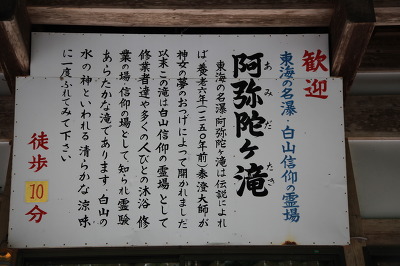 歓迎
東海の名瀑・白山信仰の霊場
阿弥陀ヶ滝
あみだたき
東海の名瀑阿弥陀ヶ滝は伝説によれ
ば養老六年(一二五〇年前)泰澄大師が
神女の夢のおつげによって開かれました
以来この滝は白山信仰の霊場として
修業者達や多くの人びとの沐浴修
業の場信仰の場として、知られ霊験
あらたかな滝であります。白山の
水の神といわれる清らかな涼味
に一度ふれてみて下さい
徒歩10分